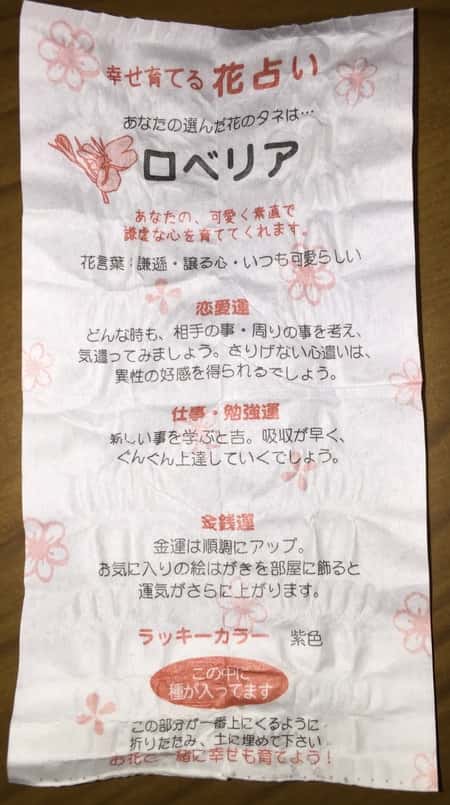 幸せ育てる 花占い
あなたの選んだ花のタネは…
ロベリア
あなたの、可愛く素直で
謙虚な心を育ててくれます。
花言葉:謙遜・譲る心・いつも可愛らしい
恋愛運
どんな時も、相手の事・周りの事を考え、
気遣ってみましょう。さりげない心遣いは、
異性の好感を得られるでしょう。
仕事・勉強運
新しい事を学ぶと吉。吸収が早く、
ぐんぐん上達していくでしょう。
金銭運
金運は順調にアップ。
お気に入りの絵はがきを部屋に飾ると
運気がさらに上がります。
ラッキーカラー 紫色
この中に
種が入ってます
この部分が一番上にくるように
折りたたみ、土に埋めて下さい
お花と一緒に幸せも育てよう!